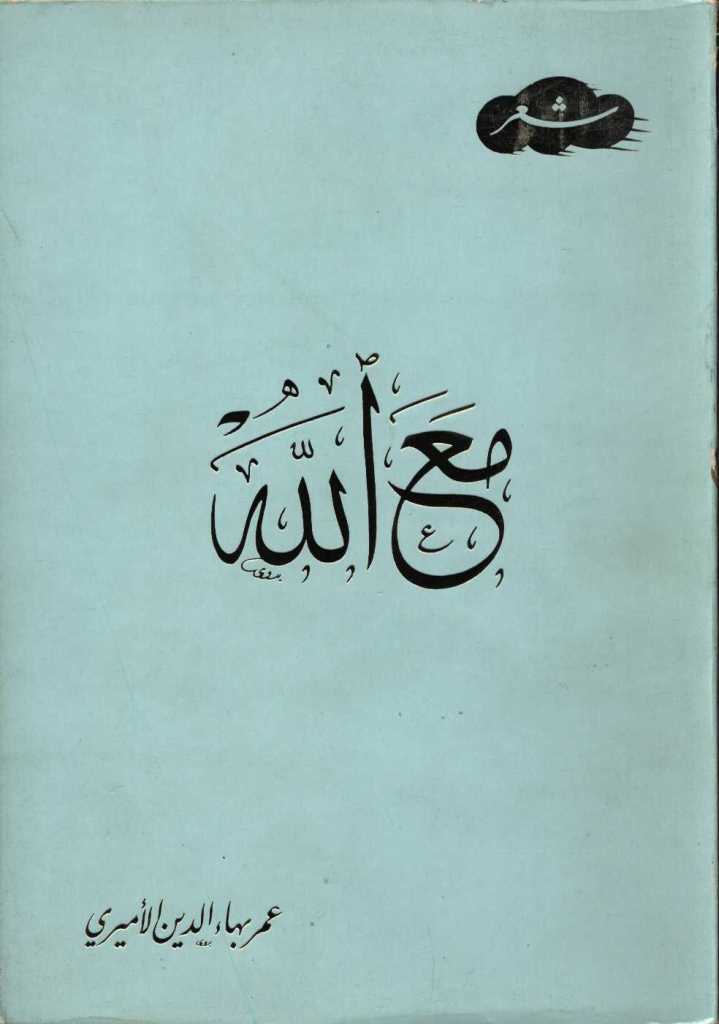 شعر
مع ٱللَّه
بدوي
عمر بهاء الدين الأميري